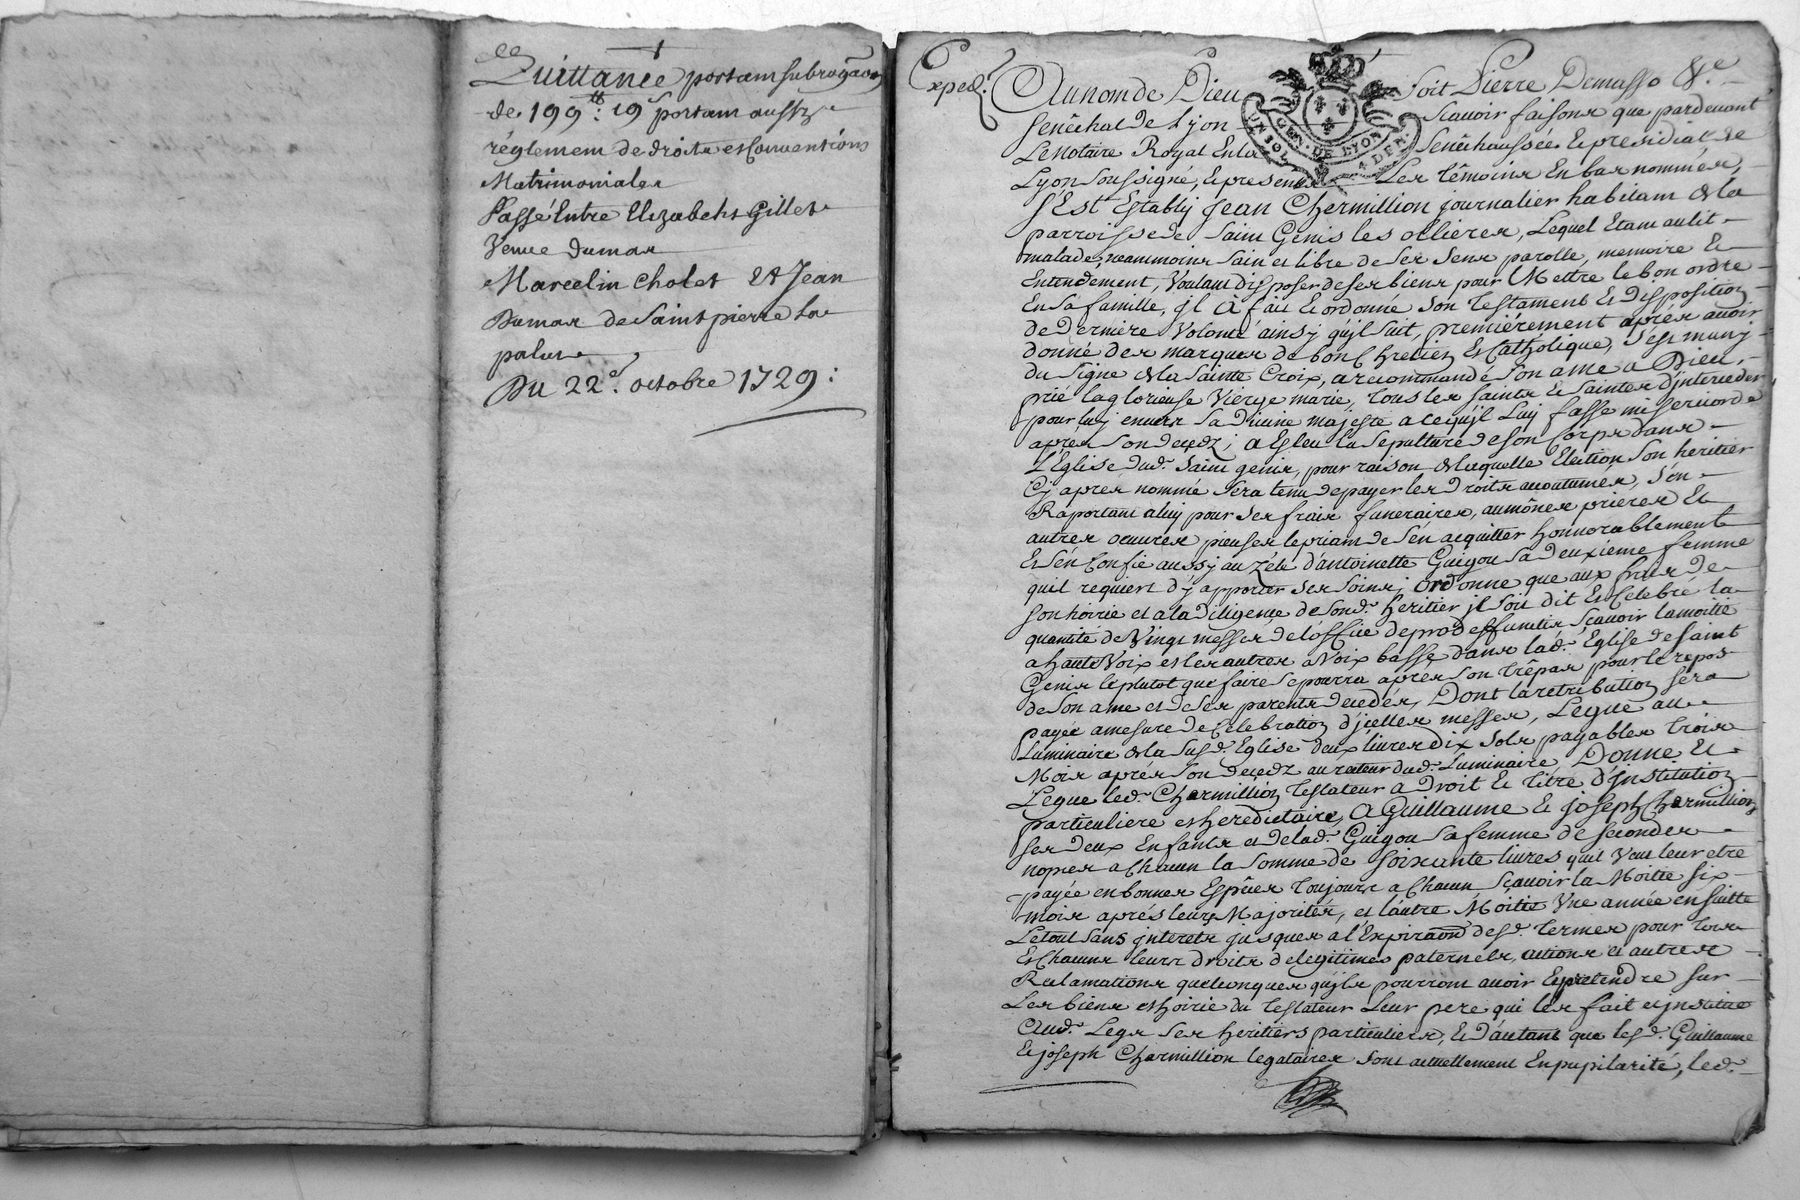 Quittance portant subrogãon
de 199ᵗᵗ: 19ˢ portant aussy
réglement de droits et Conventions
Matrimoniales
Passé Entre Elizabeht Gillet
Veuve Dumas
Marcelin Cholet Et Jean
Dumas de Saint pierre La
palue
Du 22ᵉ. octobre 1729:
Exped.
Au nom de Dieu Soit Pierre Demasso &ᵉ
Senêchal de Lyon Scavoir faisons que pardevant
Le Notaire Royal En la Senêchaussée & presidial de
Lyon Soussigné, & presents Les têmoins En bas nommés,
GEN. DE LYON
UN SOL 4 DEN.
S'Est Establÿ Jean Chermillion journalier habitant de la
parroisse de Saint Genis les ollieres, Lequel Etant au lit
malade, neammoins Sain et libre de Ses Sens parolle, memoire &
Entendement, Voulant disposer de Ses biens pour Mettre le bon ordre
En Sa famille, jl a fait & ordonné Son testament & disposition
de derniére Volonté ainsÿ quil Suit, premiérement aprés avoir
donné des marques de bon Chretien & Catholique, s'est munÿ
du Signe de la Sainte Croix, a recommandé Son ame a Dieu,
prié la glorieuse Vierge marie, tous les Saints & Saintes d'jnterceder
pour luy envers Sa Divine majesté a ce quÿl Luy fasse misericorde
aprés Son decedz; a Esleu la Sepulture de Son Corps dans
L'Eglise dud. Saint genis, pour raison de laquelle Election Son heritier
Cy apres nommé Sera tenu de payer les Droits accoutumés, S'en
Raportant a luy pour Ses frais funeraires, aumônes prieres Et
autres oeuvres pieuses le priant de S'en acquitter honnorablement
Et S'en Confie aussÿ au Zéle d'antoinette Guigou Sa deuxieme femme
quil requiert d'y apporter Ses Soins; ordonne que aux frais de
Son hoirie et a la Diligence de Sond. heritier jl Soit dit & Celebré la
quantité de Vingt messes de lóffice de pro deffunctis Scavoir la moitié
a haute Voix et les autres a Voix basse dans lad. Eglise de Saint
Genis le plutot que faire Se pourra aprés Son trêpas pour le repos
de Son ame et de Ses parents decedés, Dont la retribution Sera
payée a mesure de Célebration d'jcelles messes, Legue au
Luminaire de la Susd. Eglise deux livres dix Sols payables trois
Mois aprés Son decedz au recteur dud. Luminaire, Donne Et
Legue led. Chermillion testateur a Droit & titre d'jnstitution
particuliere et hereditaire, A Guillaume & joseph Chermillion
Ses deux Enfants et de lad. Guigou Sa femme de Secondes
nopces a Chacun la Somme de Soixante livres quil Veut leur etre
payée en bonnes Espêces toujours a Chacun Scavoir la Moitié Six
mois aprés leurs Majorités, et láutre Moitié Vne année en Suitte
Le tout Sans jnterets jusques a l'Expiraõn desd. termes pour tous
Et Chacuns leurs droits de legitimes paternels, actions et autres
Reclamations quelconques quÿls pourront avoir & pretendre Sur
Les biens et hoirie du testateur Leur pere qui les fait et jnstitue
Aud. Legs Ses heritiers particuliers, & d'autant que lesd. Guillaume
& joseph Chermillion legataires Sont actuellement En pupilarité, led.